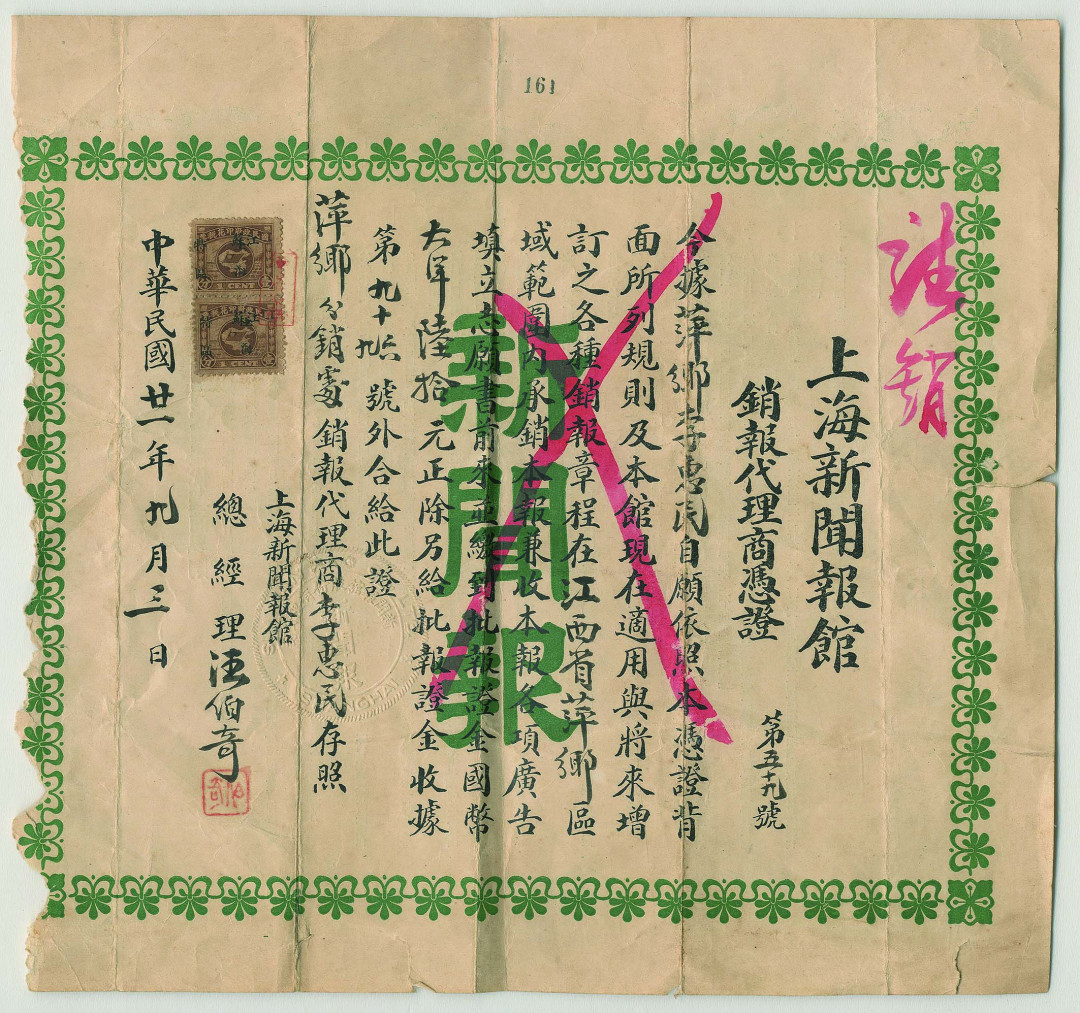 161
註銷
上海新聞報館
銷報代理商憑證
第五十九號
今據萍鄉李惠民自願依照本憑證背
面所列規則及本館現在適用與將來增
訂之各種銷報章程在江西省萍鄉區
域範圍內承銷本報兼收本報各項廣告
填立志願書前來並繳到批報證金國幣
大洋陸拾元正除另給批報證金收據
第九十六號外合給此證
九
萍鄉分銷處銷報代理商李惠民存照
上海新聞報館
總經理汪伯奇
中華民國廿一年九月三日
新聞報
CENT
CENT